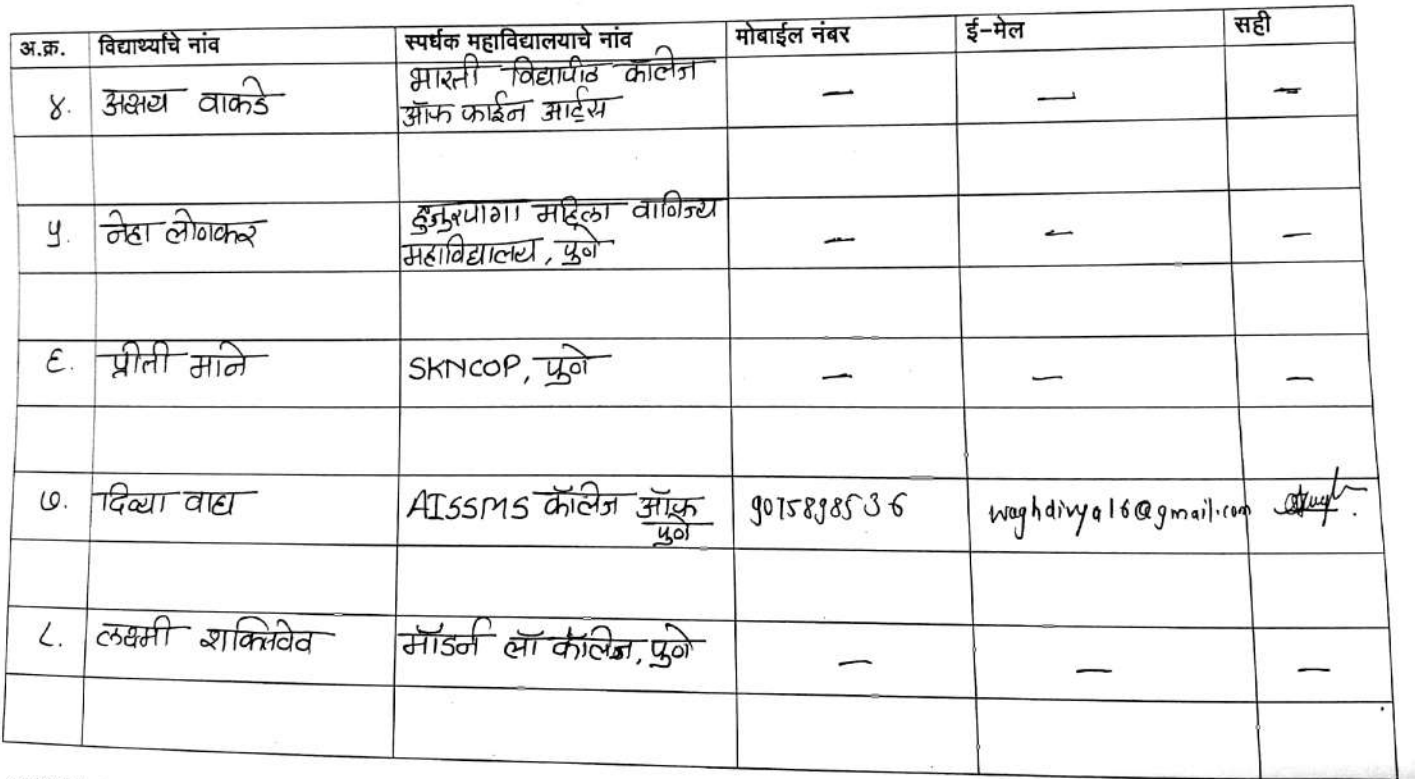 अ.क्र. विद्यार्थ्यांचे नांव स्पर्धक महाविद्यालयाचे नांव मोबाईल नंबर ई-मेल सही
४. अक्षय वाकडे भारती विद्यापीठ कॉलेज — — —
ऑफ फाईन आर्ट्स
५. नेहा लोणकर हुजुरपागा महिला वाणिज्य — — —
महाविद्यालय, पुणे
६. प्रीती माने SKNCOP, पुणे — — —
७. दिव्या वाघ AISSMS कॉलेज ऑफ 9075898536 waghdivya16@gmail.com
पुणे
८. लक्ष्मी शक्तिवेव मॉडर्न लॉ कॉलेज, पुणे — — —